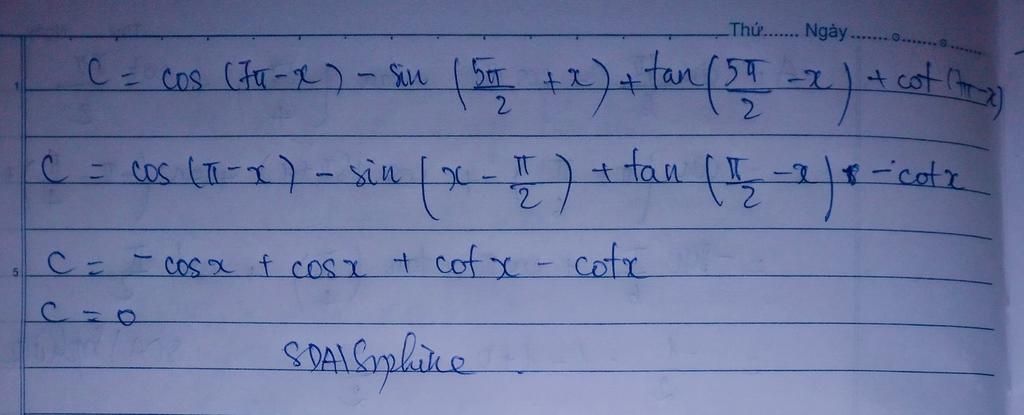 Thứ....... Ngày.......o.......o.......
C = cos (7π - x) - sin (5π/2 + x) + tan (5π/2 - x) + cot (7π - x)
C = cos (π - x) - sin (x - π/2) + tan (π/2 - x) - cotx
5 C = - cosx + cosx + cotx - cotx
C = 0